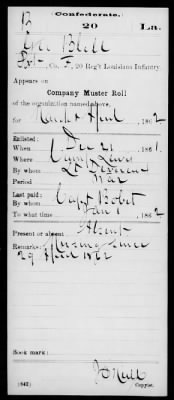 Confederate.
B 20 La.
Blell
Pvt., Co. F, 20 Reg't Louisiana Infantry.
Appears on
Company Muster Roll
of the organization named above,
for March & April, 1862
Enlisted:
When Dec 21, 1861.
Where Camp Lewis
By whom Lt
Period War
Last paid:
By whom Capt
To what time Jan 1, 1862
Present or absent Absent
Remarks: Missing since
29 April 1862
Book mark:
(642) Copyist.